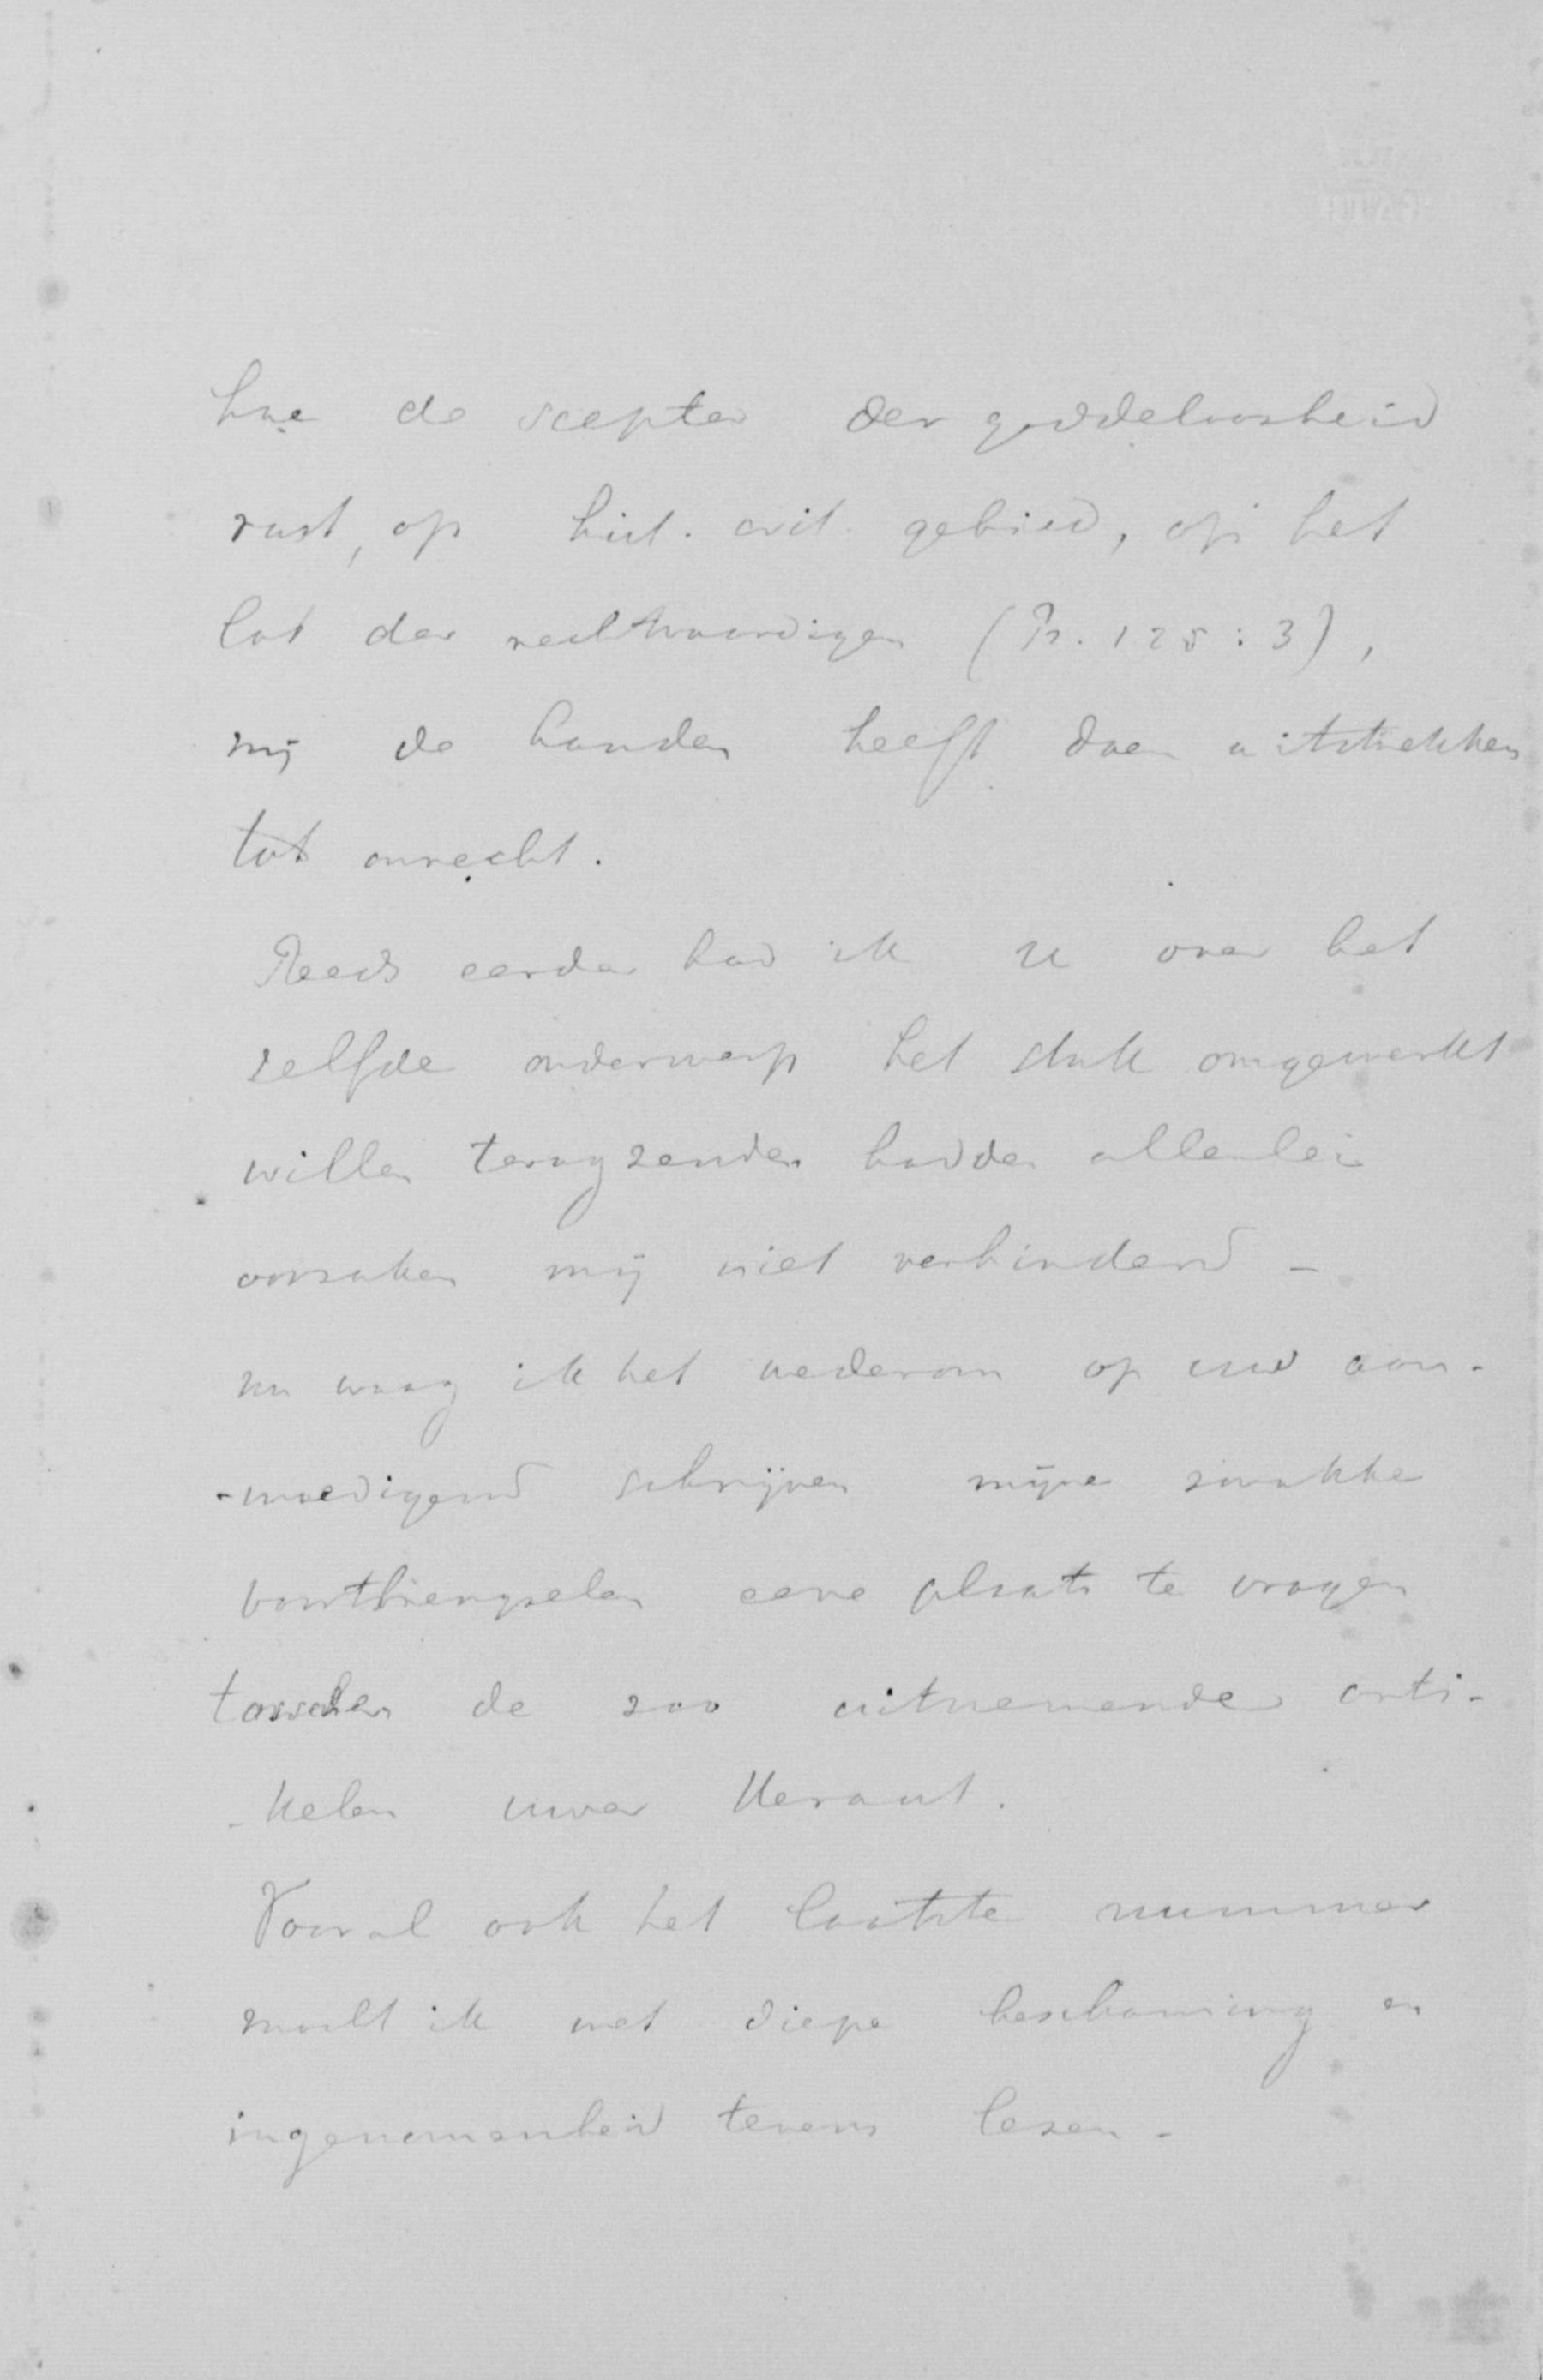 hoe de scepter der goddeloosheid
rust, op hist. crit. gebied, op het
lot der rechtvaardigen (Ps. 125:3),
mij de handen heeft doen uitstrekken
tot onrecht.
Reeds eerder had ik U over het
zelfde onderwerp het stuk omgewerkt
willen terugzenden hadden allerlei
oorzaken mij niet verhinderd -
nu waag ik het wederom op uw aan-
-moedigend schrijven mijne zwakke
voortbrengselen eene plaats te vragen
tusschen de zoo uitnemende arti-
-kelen uwer Heraut.
Vooral ook het laatste nummer
mocht ik met diepe beschaming en
ingenomenheid tevens lezen -